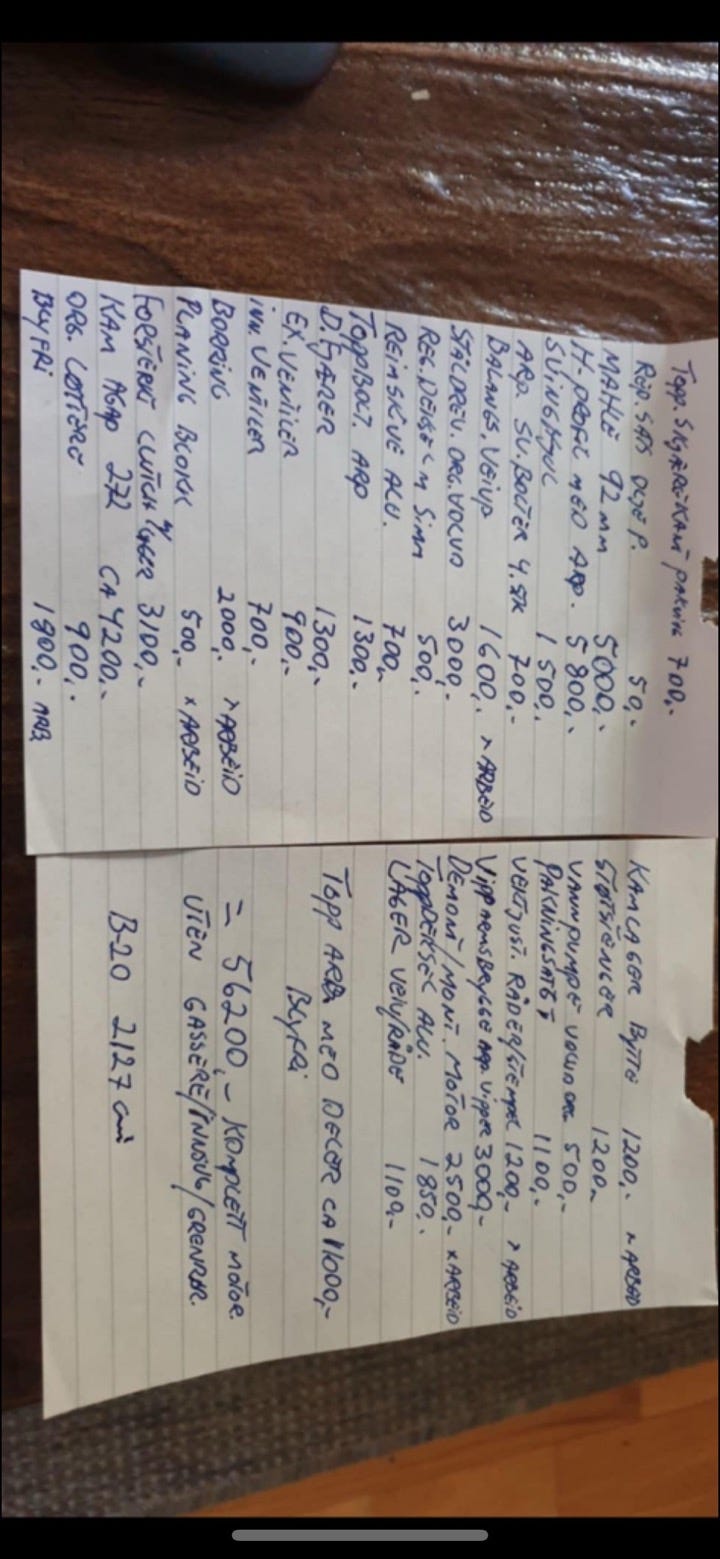 TOPP. SKJÆRE KAM PAKNING 700,-
REP. SATS OLJE P. 50,-
MAHLE 92 MM 5000,-
H-PROFIL MED ARP. 5800,-
SVINGHJUL 1500,-
ARP. SV. BOLTER 4.STK 700,-
BALANGS, VEIVP 1600,- × ARBEID
STÅLDREV. ORG. VOLVO 3000,-
REG. DEKSEL M SIM 500,-
REIMSKIVE ALU. 700,-
TOPPBOLT. ARP 1300,-
D. FJÆRER 1300,-
EX. VENTILER 900,-
INN. VENTILER 700,-
BORRING 2000,- × ARBEID
PLANING BLOKK 500,- × ARBEID
FORSTERKT CLUTCH M/LAGER 3100,-
KAM 272 CA 4200,-
ORG. LØFTERE 900,-
BLYFRI 1800,- ARB.
KAMLAGER BYTTE 1200,- × ARBEID
STØTSTENGER 1200,-
VANNPUMPE VOLVO ORG. 500,-
PAKNINGSATS 1100,-
VEKTJUST. RÅDER/STEMPEL 1200,- × ARBEID
VIPPEARMSBRYGGE VIPPER 3000,-
DEMONT/MONT. MOTOR 2500,- × ARBEID
TOPPDEKSEL ALU. 1850,-
LAGER VEIV/RÅDE 1100,-
TOPP ARB. MED DELER CA 11000,-
BLYFRI
= 56200,- KOMPLETT MOTOR
UTEN GASSERE/INNSUG/GRENRØR.
B-20 2127 cm³